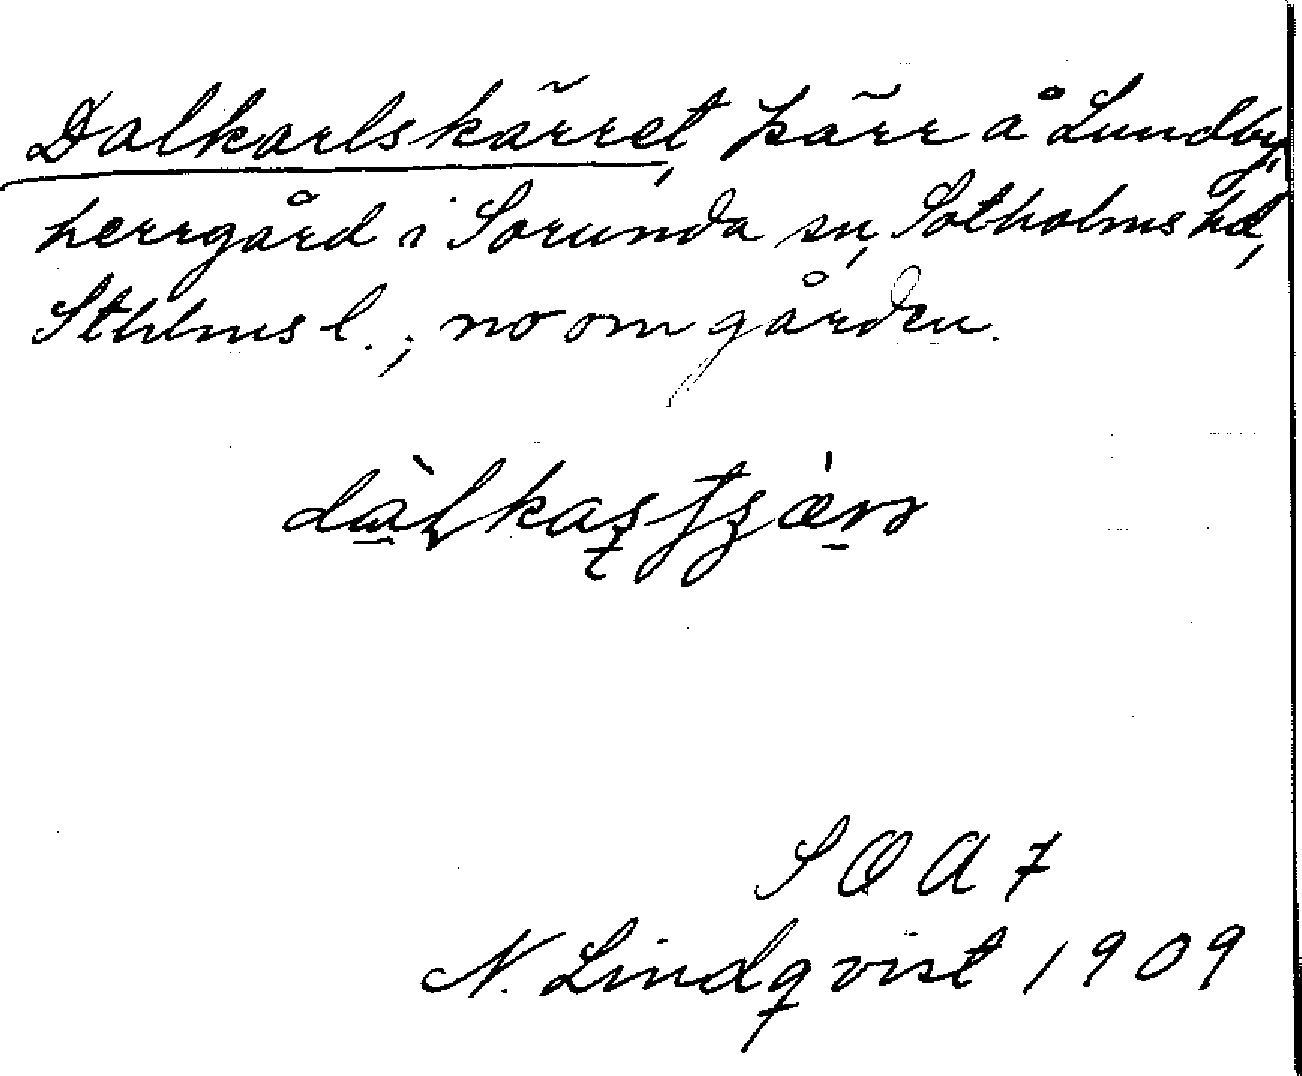 Dalkarlskärret, kärr å Lundby
herrgård i Sorunda sn, Sotholms hd,
Sthlms l.; no om gården.
SOA 7
N. Lindqvist 1909